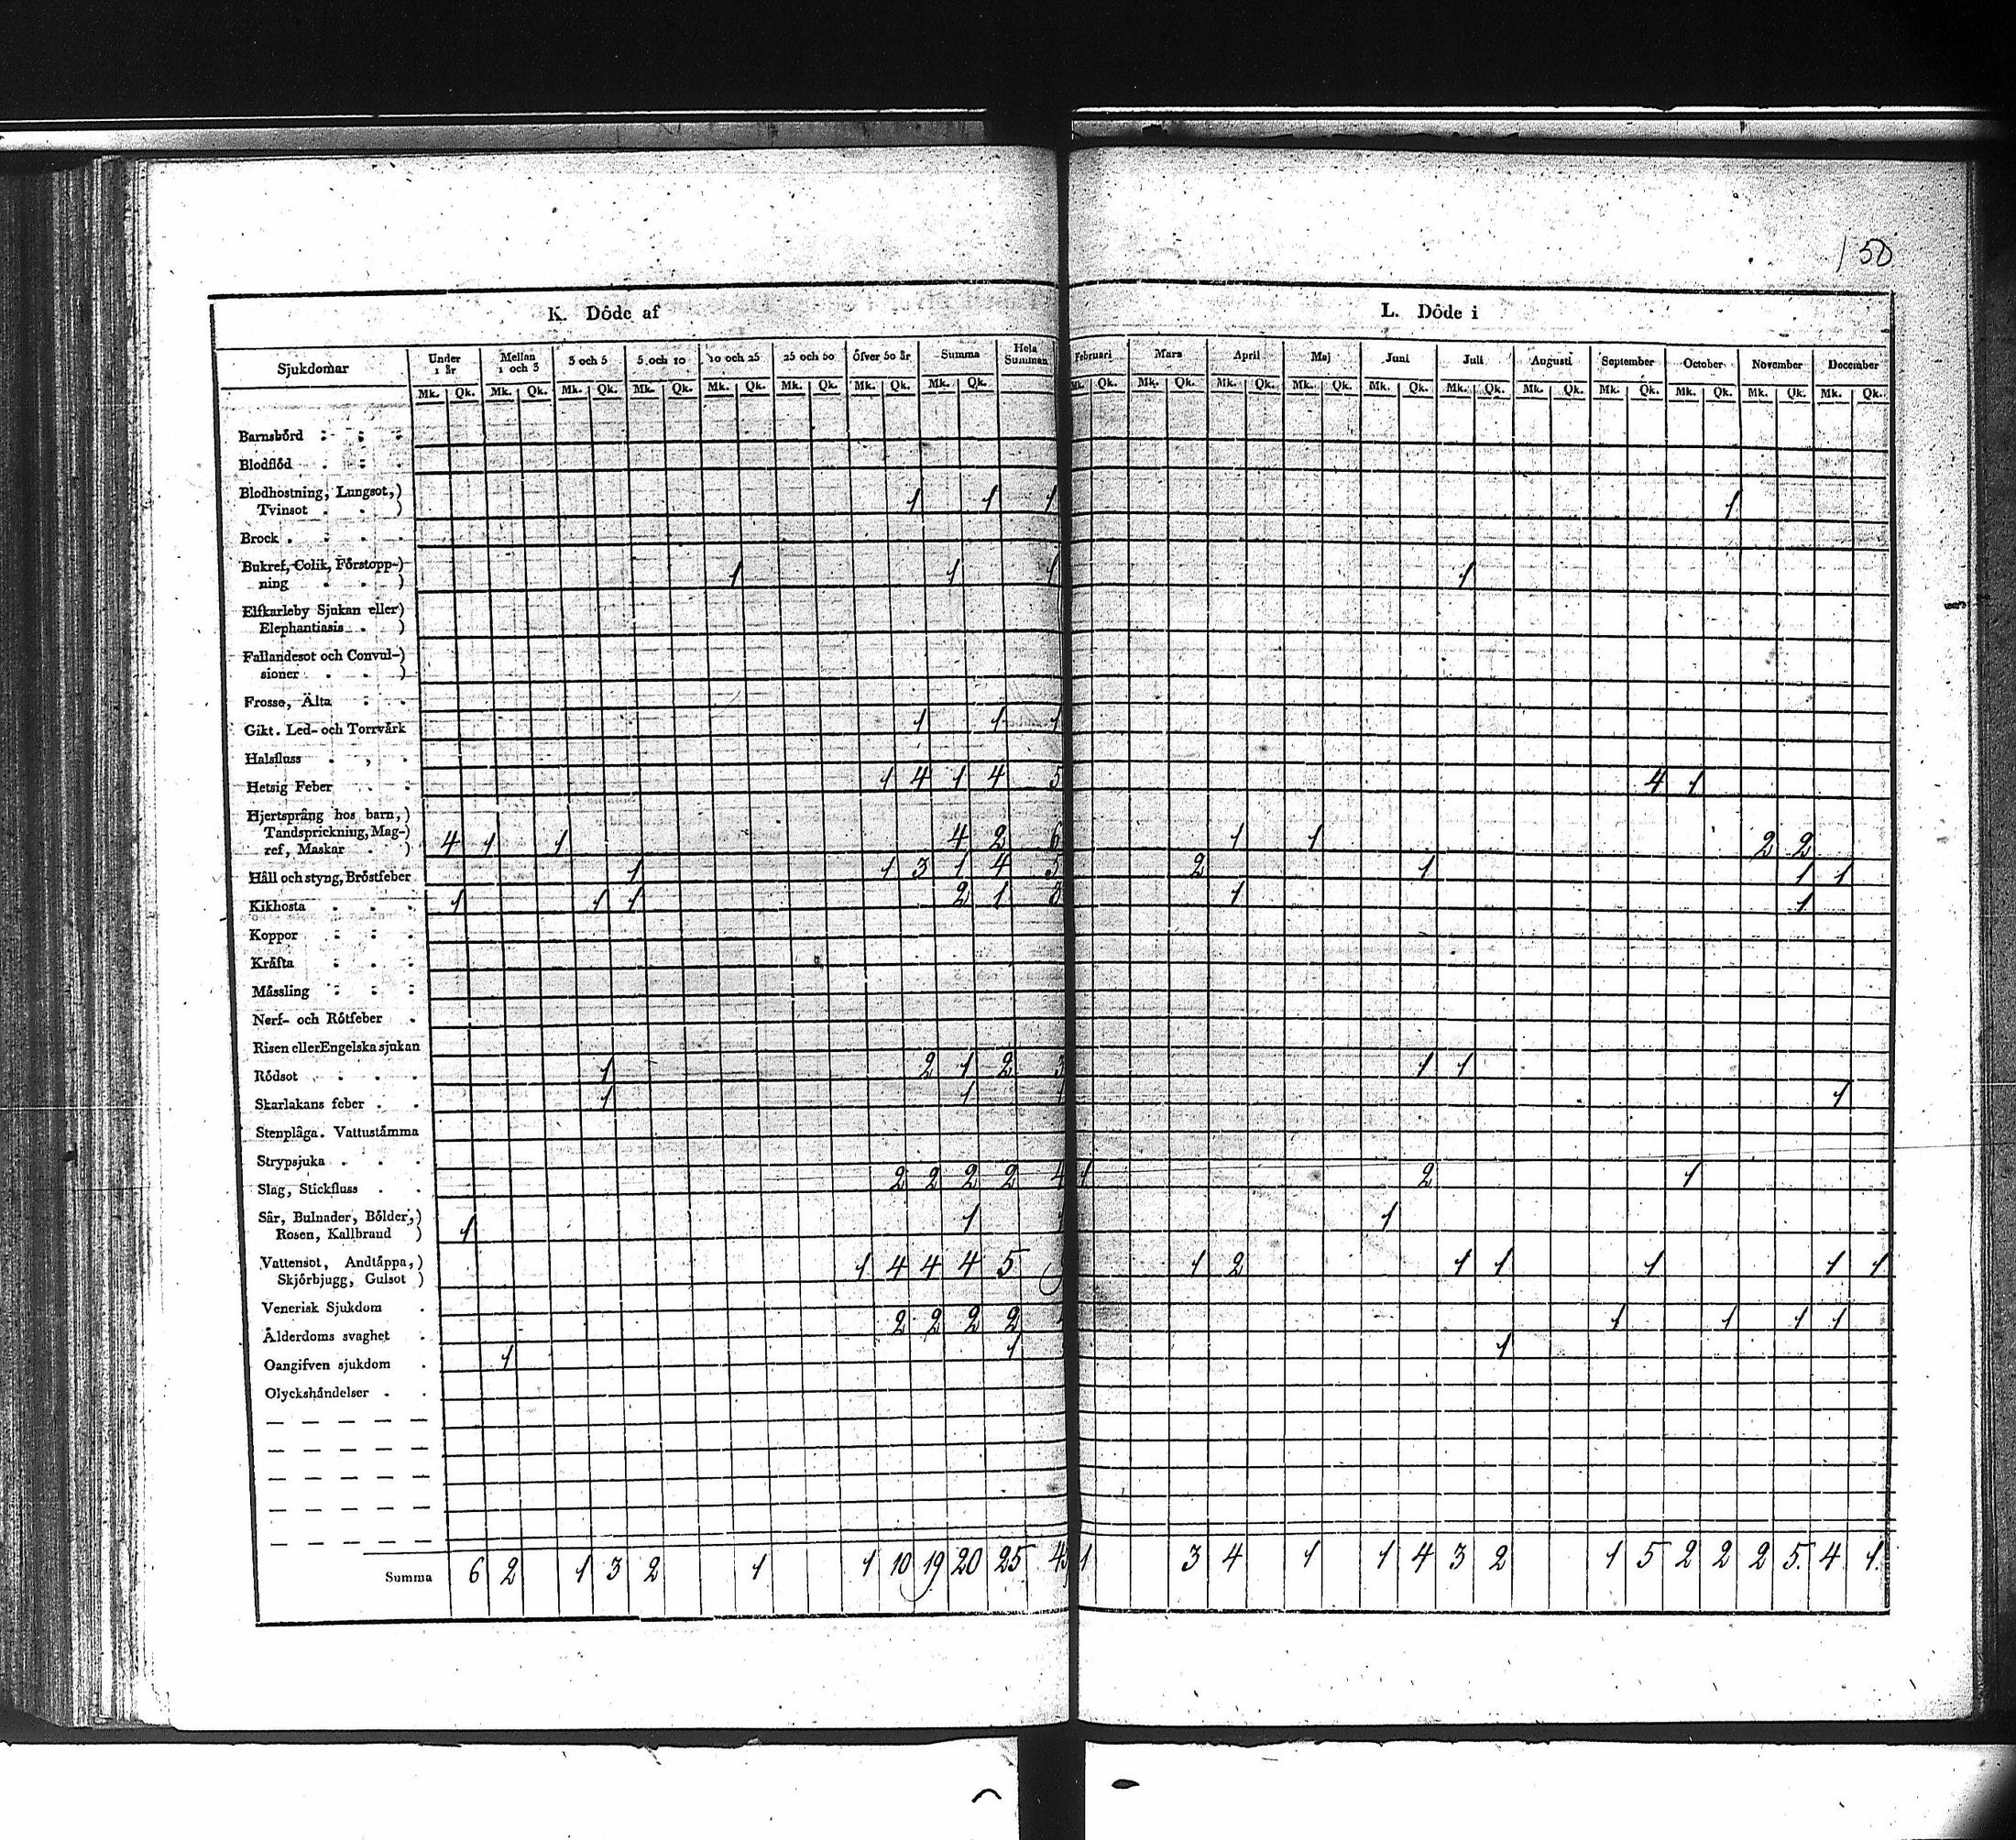 150
K. Döde af
L. Döde i
Sjukdomar Under 1 år Mellan 1 och 3 3 och 5 5 och 10 10 och 25 25 och 50 Öfver 50 år Summa Hela Summan Februari Mars April Maj Juni Juli Augusti September October November December
Mk. Qk. Mk. Qk. Mk. Qk. Mk. Qk. Mk. Qk. Mk. Qk. Mk. Qk. Mk. Qk. Mk. Qk. Mk. Qk. Mk. Qk. Mk. Qk. Mk. Qk. Mk. Qk. Mk. Qk. Mk. Qk. Mk. Qk. Mk. Qk. Mk. Qk.
Barnsbörd
Blodflöd
Blodhostning, Lungsot,)
Tvinsot . . ) 1 1 1 1
Brock .
Bukref, Colik, Förstopp-)
ning . . ) 1 1 1 1
Elfkarleby Sjukan eller)
Elephantiasis . )
Fallandesot och Convul-)
sioner . . )
Frossa, Älta
Gikt. Led- och Torrvärk 1 1 1
Halsfluss
Hetsig Feber 1 4 1 4 5 4 1
Hjertsprång hos barn,)
Tandsprickning, Mag-)
ref, Maskar . ) 4 1 1 4 2 6 1 1 2 2
Håll och styng, Bröstfeber 1 1 3 1 4 5 2 1 1 1
Kikhosta 1 1 1 2 1 3 1 1
Koppor
Kräfta
Mässling
Nerf- och Rötfeber
Risen eller Engelska sjukan
Rödsot 1 2 1 2 3 1 1
Skarlakans feber . 1 1 1 1
Stenplåga. Vattustämma
Strypsjuka .
Slag, Stickfluss . 2 2 2 2 4 1 2 1
Sår, Bulnader, Bölder,)
Rosen, Kallbrand ) 1 1 1 1
Vattensot, Andtäppa,)
Skjörbjugg, Gulsot ) 1 4 4 4 5 9 1 2 1 1 1 1 1
Venerisk Sjukdom
Ålderdoms svaghet 2 2 2 2 1 1 1 1
Oangifven sjukdom 1 1 1
Olyckshändelser .
Summa 6 2 1 3 2 1 1 10 19 20 25 45 1 3 4 1 1 4 3 2 1 5 2 2 2 5. 4 1.